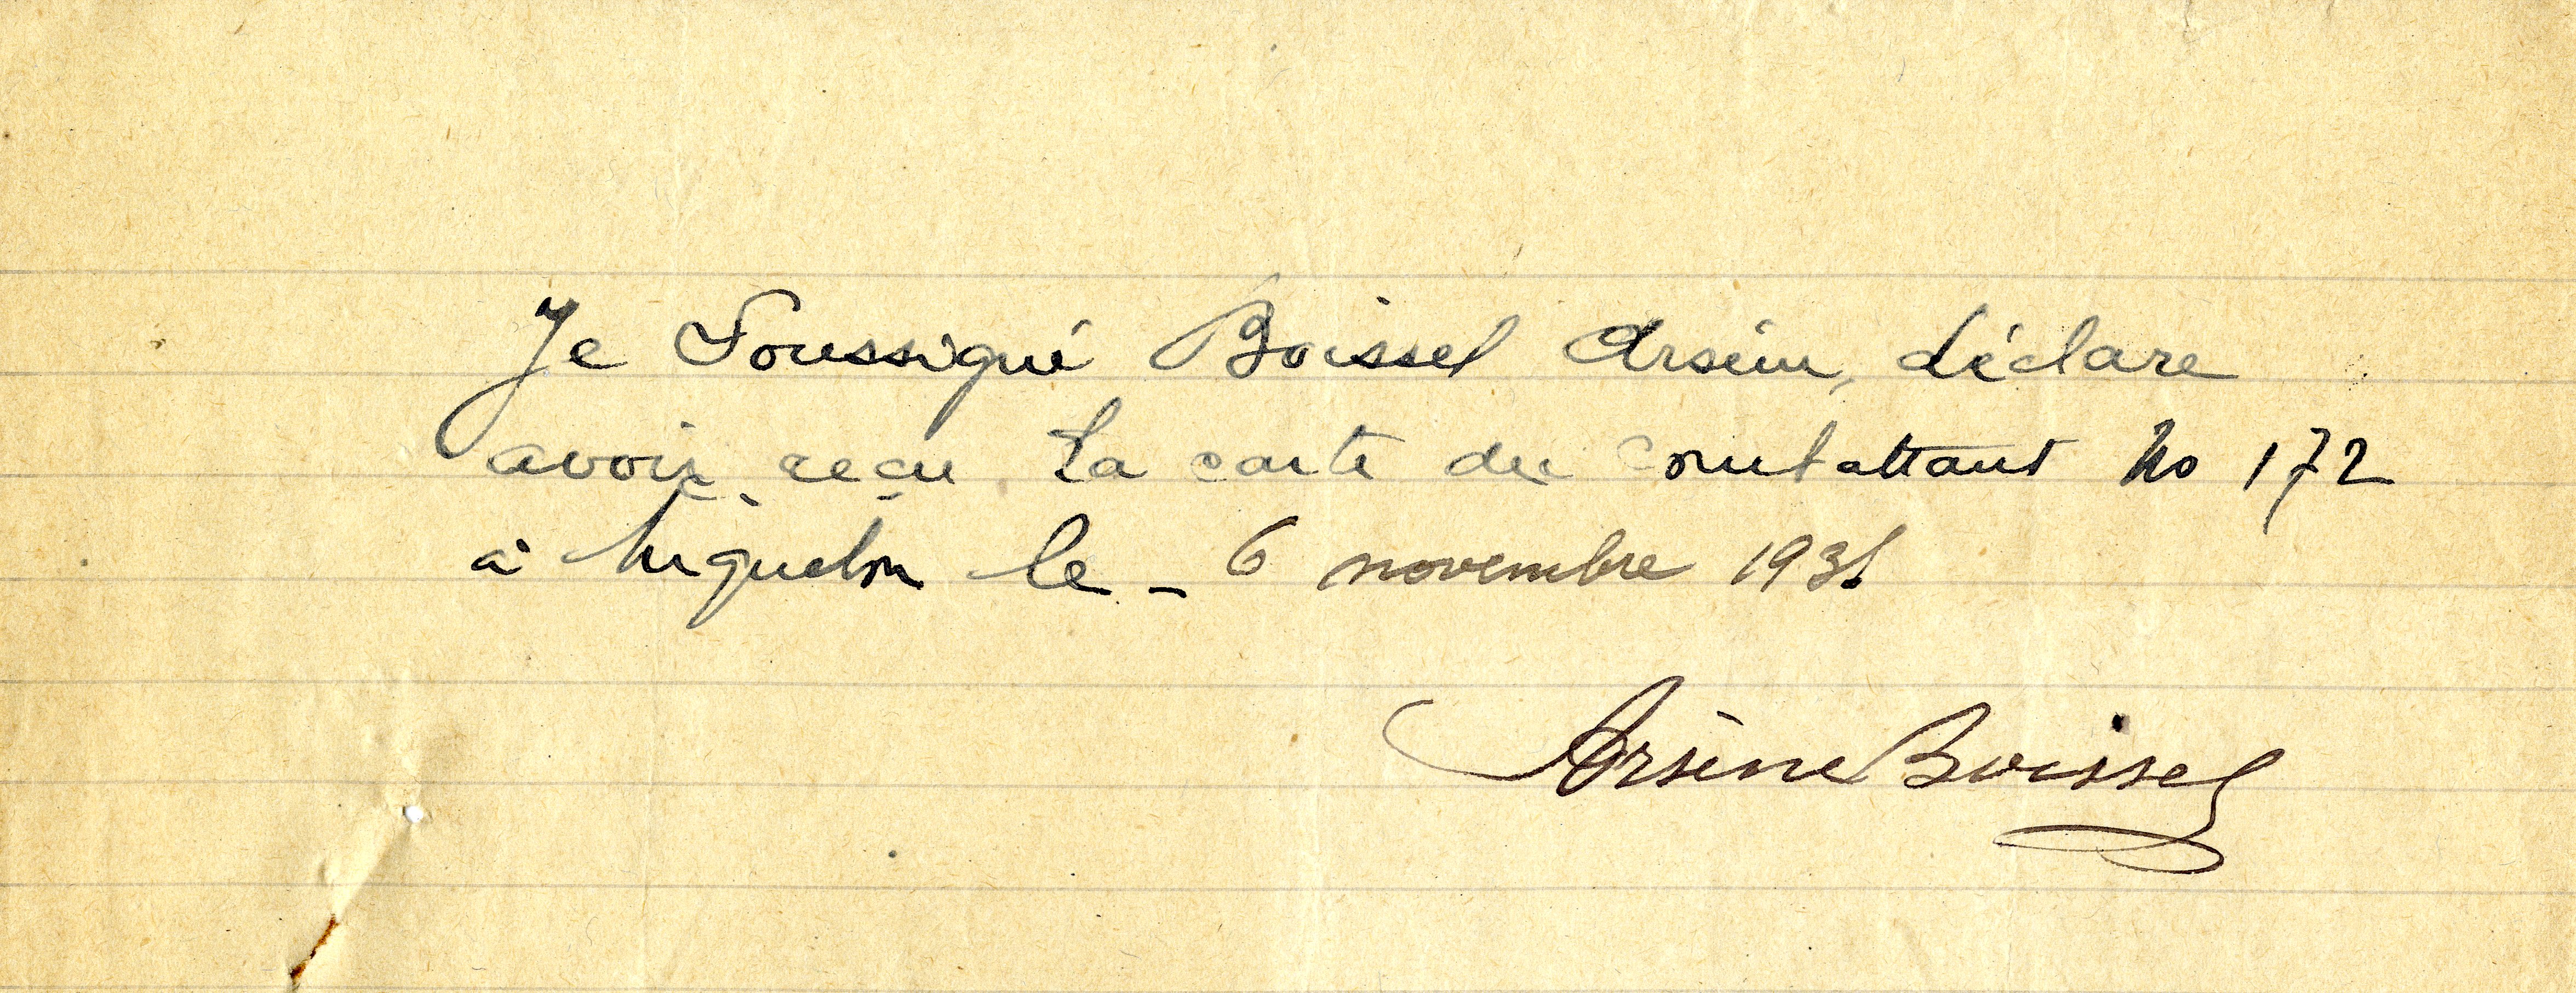 Je Soussigné Boissel Arsène, déclare
avoir reçu la carte du Combattant No 172
à Miquelon le - 6 novembre 1931
Arsène Boissel